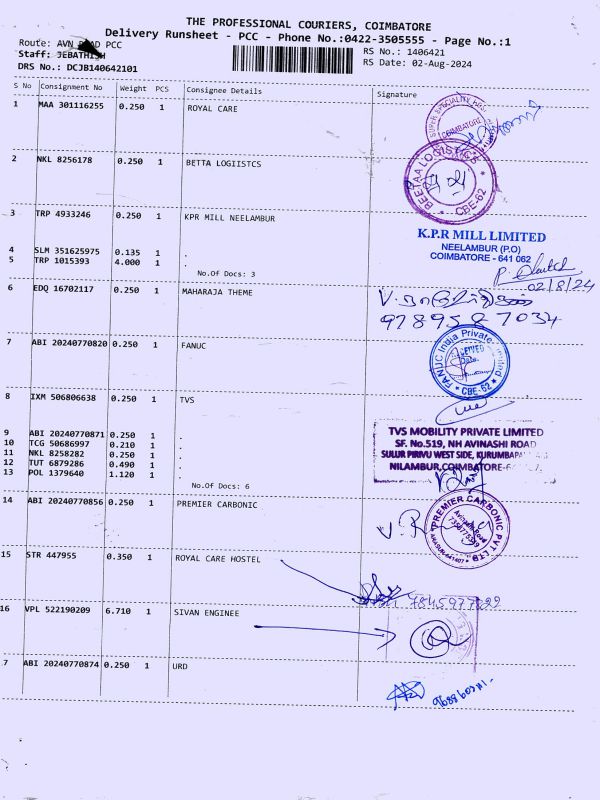 THE PROFESSIONAL COURIERS, COIMBATORE
Delivery Runsheet - PCC - Phone No.:0422-3505555 - Page No.:1
Route: AVN ROAD PCC
RS No.: 1406421
Staff: JEBATHISH
RS Date: 02-Aug-2024
DRS No.: DCJB140642101
S No Consignment No Weight PCS Consignee Details Signature
1 MAA 301116255 0.250 1 ROYAL CARE
COIMBATORE
2 NKL 8256178 0.250 1 BETTA LOGIISTCS
BEETAA LOGISTICS
CBE-62
3 TRP 4933246 0.250 1 KPR MILL NEELAMBUR
K.P.R MILL LIMITED
NEELAMBUR (P.O)
COIMBATORE - 641 062
4 SLM 351625975 0.135 1 .
5 TRP 1015393 4.000 1 .
No.Of Docs: 3
02/8/24
6 EDQ 16702117 0.250 1 MAHARAJA THEME
9789587034
7 ABI 20240770820 0.250 1 FANUC
FANUC India Private Limited
CBE-62
8 IXM 506806638 0.250 1 TVS
TVS MOBILITY PRIVATE LIMITED
SF. No.519, NH AVINASHI ROAD
SULUR PIRIVU WEST SIDE,
NILAMBUR, COIMBATORE-
9 ABI 20240770871 0.250 1 .
10 TCG 50686997 0.210 1 .
11 NKL 8258282 0.250 1 .
12 TUT 6879286 0.490 1 .
13 POL 1379640 1.120 1 .
No.Of Docs: 6
14 ABI 20240770856 0.250 1 PREMIER CARBONIC
PREMIER CARBONIC PVT LTD
Avinashi Road
15 STR 447955 0.350 1 ROYAL CARE HOSTEL
16 VPL 522190209 6.710 1 SIVAN ENGINEE
7 ABI 20240770874 0.250 1 URD